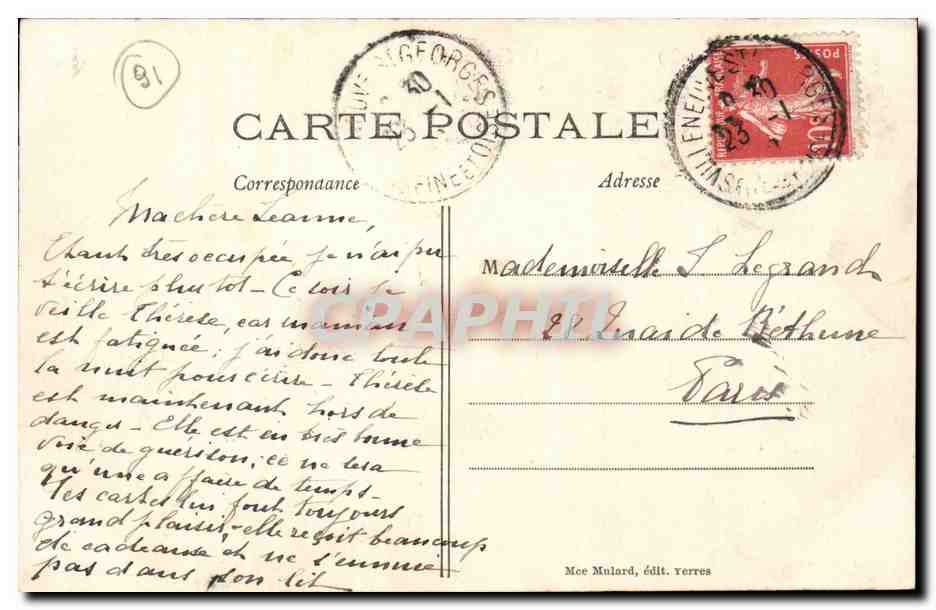 91
CARTE POSTALE
Correspondance
Adresse
Ma chère Jeanne,
Etant très occupée je n'ai pu
t'écrire plus tot - Ce soir je
veille Thérèse, car maman
est fatiguée; j'ai donc toute
la nuit pour écrire - Thérèse
est maintenant hors de
danger - Elle est en très bonne
voie de guérison; ce ne sera
qu'une affaire de temps -
Tes cartes lui font toujours
grand plaisir - elle reçoit beaucoup
de cadeaux et ne s'ennuie
pas dans son lit
Mademoiselle J Legrand
28 Quai de Béthune
Paris
Mce Mulard, édit. Yerres
CPAPHIL